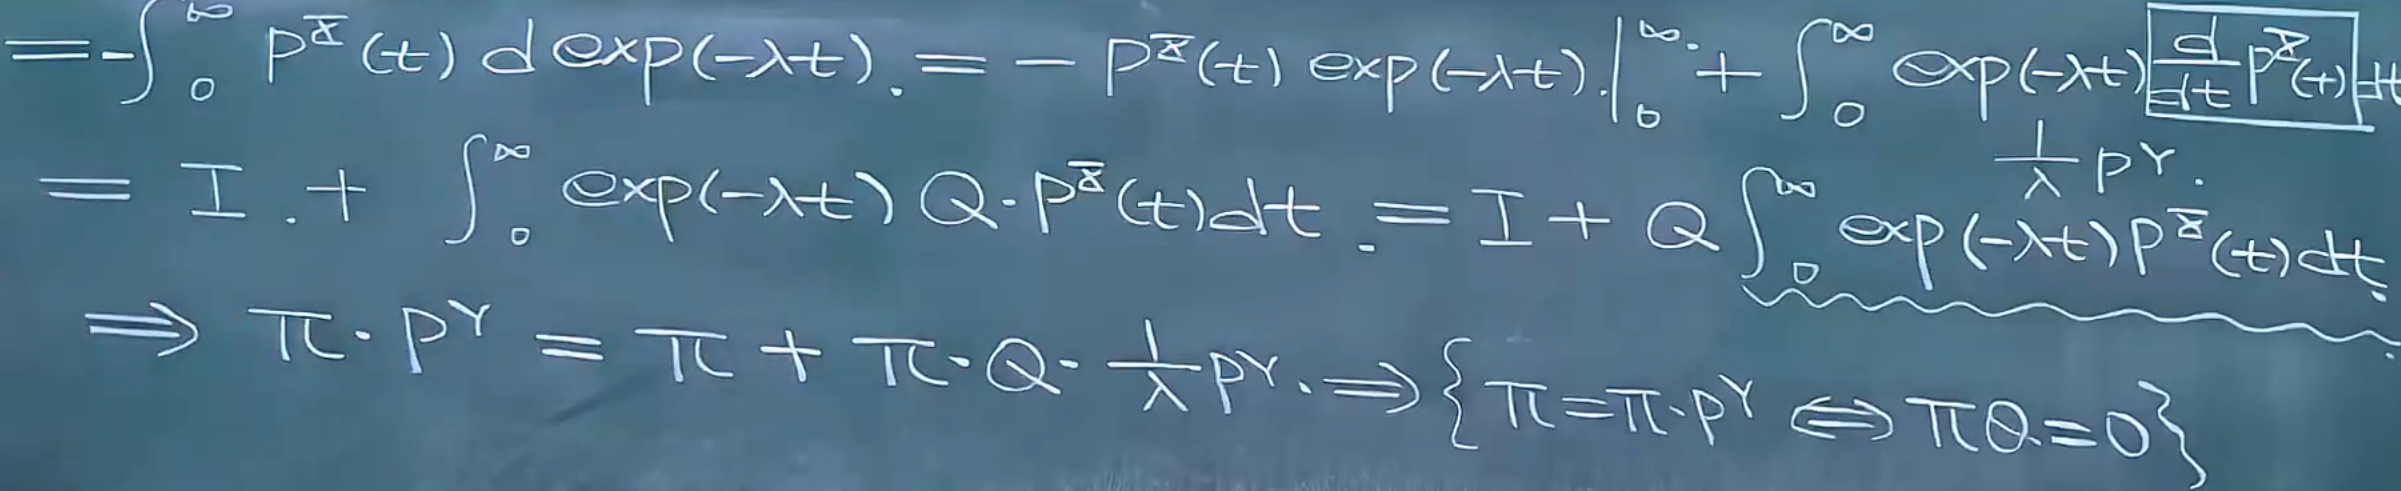 = -∫₀^∞ P^X̄(t) d exp(-λt). = - P^X̄(t) exp(-λt).|₀^∞. + ∫₀^∞ exp(-λt) d/dt P^X̄(t) dt
= I. + ∫₀^∞ exp(-λt) Q·P^X̄(t)dt. = I + Q ∫₀^∞ exp(-λt) P^X̄(t)dt.
1/λ P^Y.
⇒ π·P^Y = π + π·Q·1/λ P^Y. ⇒ {π=π·P^Y ⇔ πQ=0}